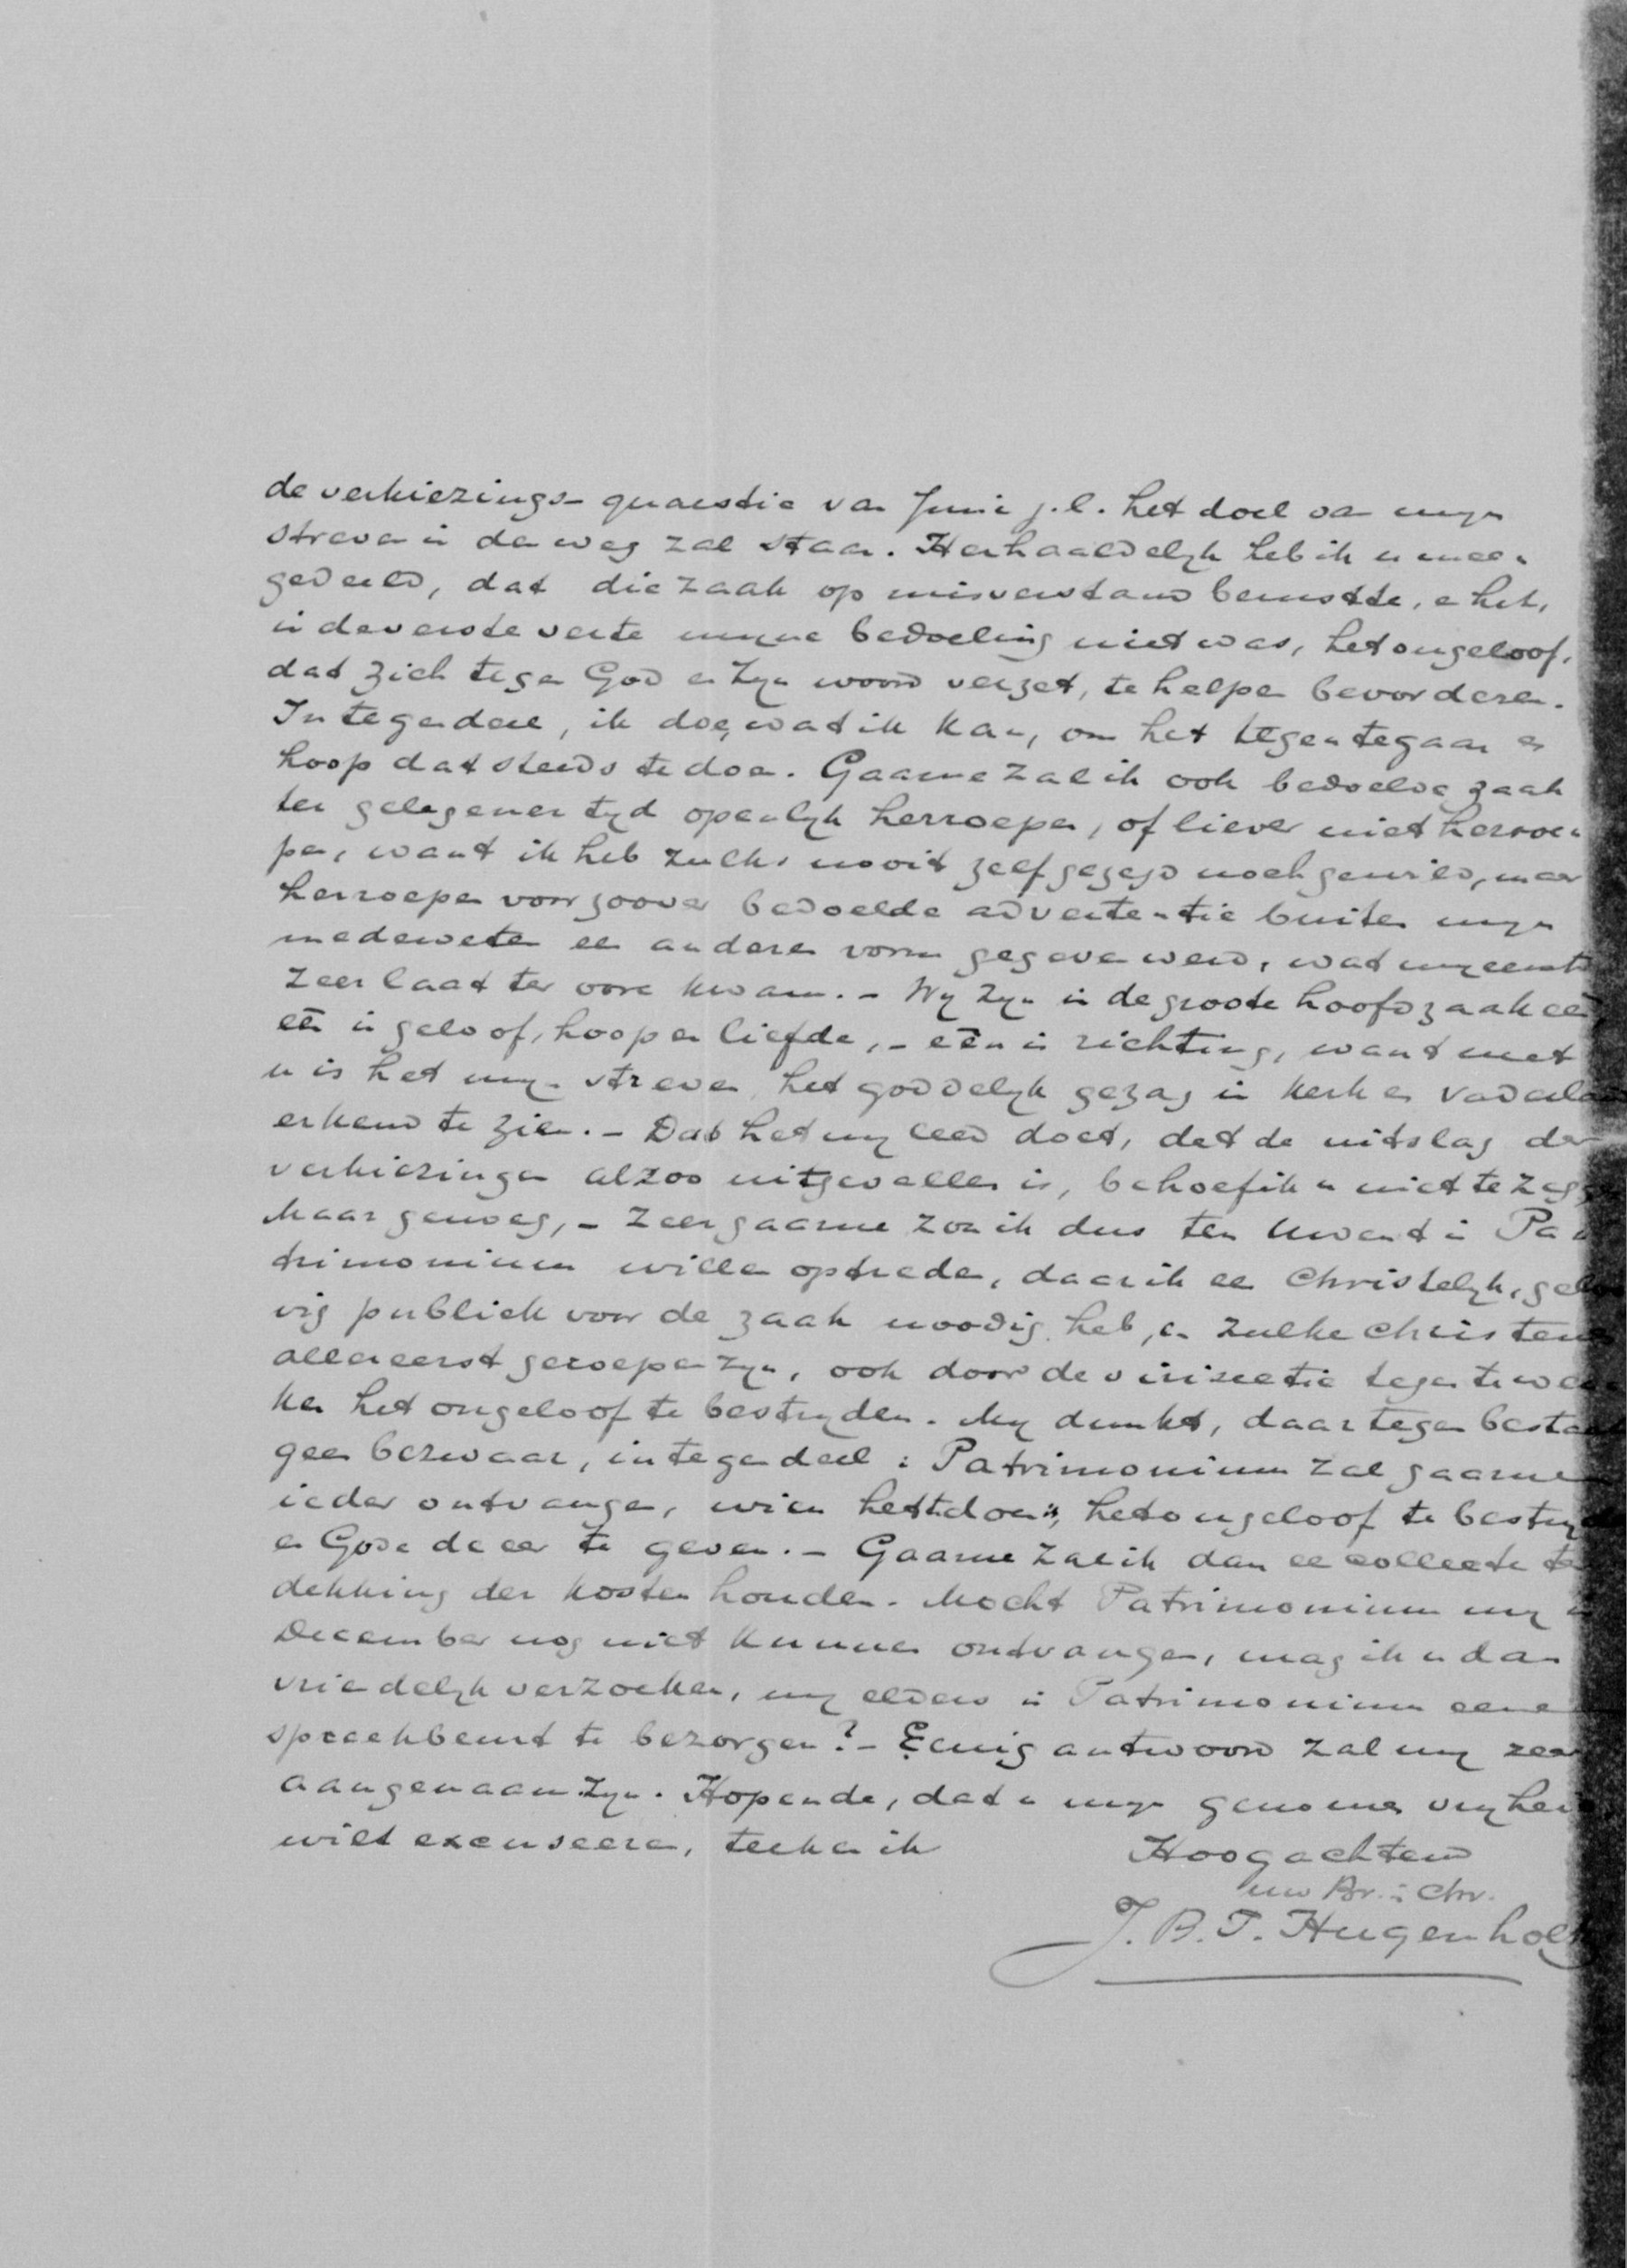 de verkiezings-quaestie van Juni j.l. het doel van mijn
streven in den weg zal staan. Herhaaldelijk heb ik u mee-
gedeeld, dat die zaak op misverstand berustte, en het,
in de verste verte mijne bedoeling niet was, het ongeloof,
dat zich tegen God en Zijn woord verzet, te helpen bevorderen.
Integendeel, ik doe, wat ik kan, om het tegen te gaan en
hoop dat steeds te doen. Gaarne zal ik ook bedoelde zaak
ter gelegener tijd openlijk herroepen, of liever niet herroe-
pen, want ik heb zulks nooit zelf gezegd noch gewild, maar
herroepen voor zoover bedoelde advertentie buiten mijn
medeweten een anderen vorm gegeven werd, wat mij eerst
zeer laat ter oore kwam. - Wij zijn in de groote hoofdzaak één,
één in geloof, hoop en liefde, - één in richting, want met
u is het mijn streven, het goddelijk gezag in kerk en vaderland
erkend te zien. - Dat het mij leed doet, dat de uitslag der
verkiezingen alzoo uitgevallen is, behoef ik u niet te zeggen
Maar genoeg, - Zeer gaarne zou ik dus ten Uwent in Pa-
trimonium willen optreden, daar ik een Christelijk, geloo-
vig publiek voor de zaak noodig heb, en zulke christenen
allereerst geroepen zijn, ook door de vivisectie tegen te wer-
ken het ongeloof te bestrijden. Mij dunkt, daartegen bestaat
geen bezwaar, integendeel: Patrimonium zal gaarne
ieder ontvangen, wien het te doen is, het ongeloof te bestrijden
en Gode de eer te geven. - Gaarne zal ik dan een collecte ter
dekking der kosten houden. Mocht Patrimonium mij in
December nog niet kunnen ontvangen, mag ik u dan
vriendelijk verzoeken, mij elders in Patrimonium eene
spreekbeurt te bezorgen? - Eenig antwoord zal mij zeer
aangenaam zijn. Hopende, dat u mijn genomen vrijheid
wilt excuseeren, teeken ik
Hoogachtend
uw Br. in Chr.
J. B. T. Hugenholtz